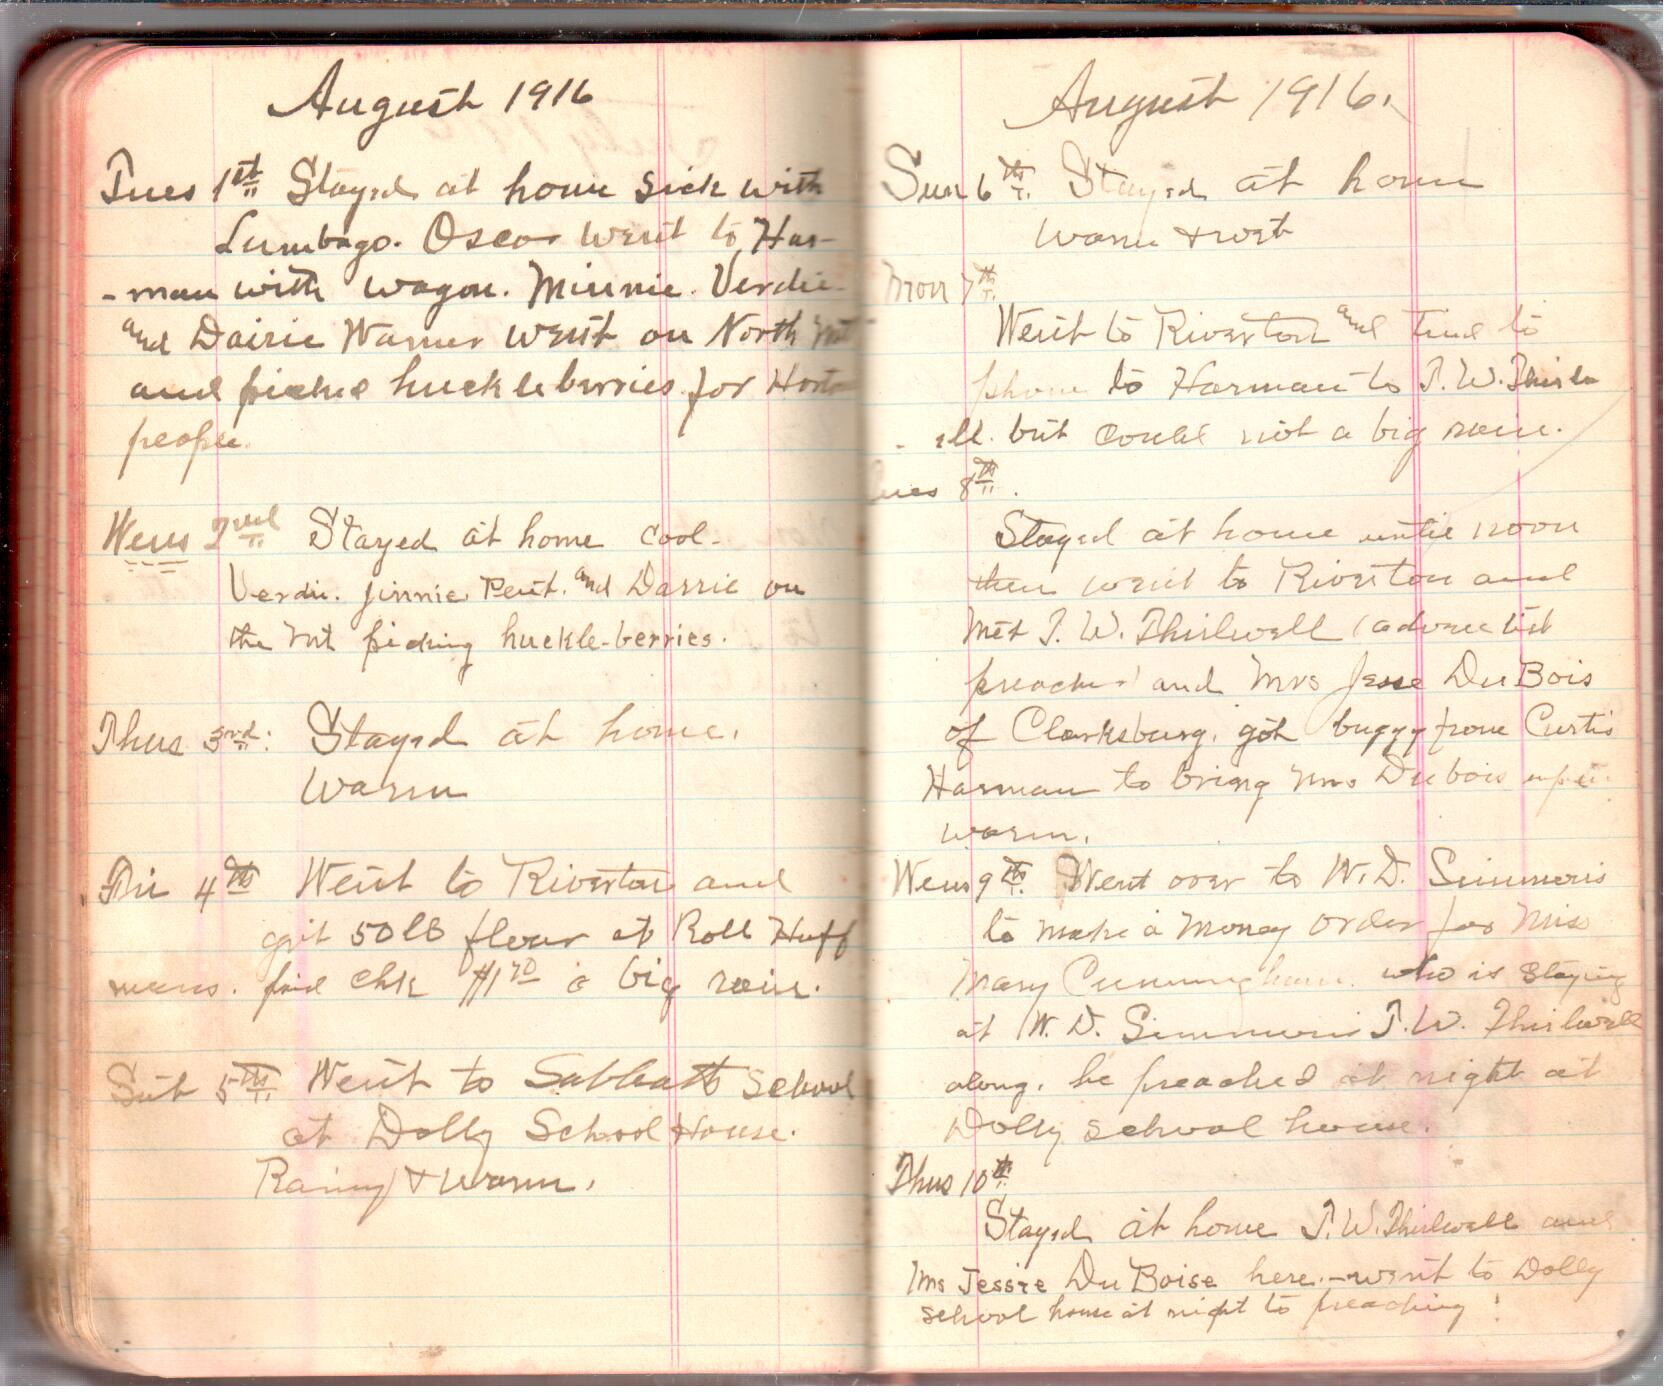 August 1916
Tues 1st Stayed at home sick with
Lumbago. Oscar went to Har-
-man with wagon. Minnie. Verdie
and Dairie Warner went on North Mt
and picked huckleberries for Horton
people.
Wens 2nd Stayed at home cool-
Verdie. Jinnie Pent. and Darrie on
the Mt picking huckle-berries.
Thus 3rd: Stayed at home.
Warm
Fri 4th Went to Riverton and
got 50 lb flour at Roll Huff
mans. paid chk $1 70 a big rain.
Sat 5th Went to Sabbath School
at Dolly School House.
Rainy & Warm.
August 1916.
Sun 6th Stayed at home
Warm & wet
Mon 7th
Went to Riverton and tried to
phone to Harman to T. W. Thirlw
-ell. but could not a big rain.
Tues 8th.
Stayed at home until noon
then went to Riverton and
Met T. W. Thirlwell (adventist
preacher) and Mrs Jesse DuBois
of Clarksburg. got buggy from Curtis
Harman to bring Mrs Dubois up in.
warm.
Wens 9th. Went over to W. D. Simmons
to make a Money order for Miss
Mary Cunningham. who is staying
at W. D. Simmons T. W. Thirlwell
along. he preached at night at
Dolly school house.
Thus 10th
Stayed at home T. W. Thirlwell and
Mrs Jessie DuBoise here.-went to Dolly
school house at night to preaching